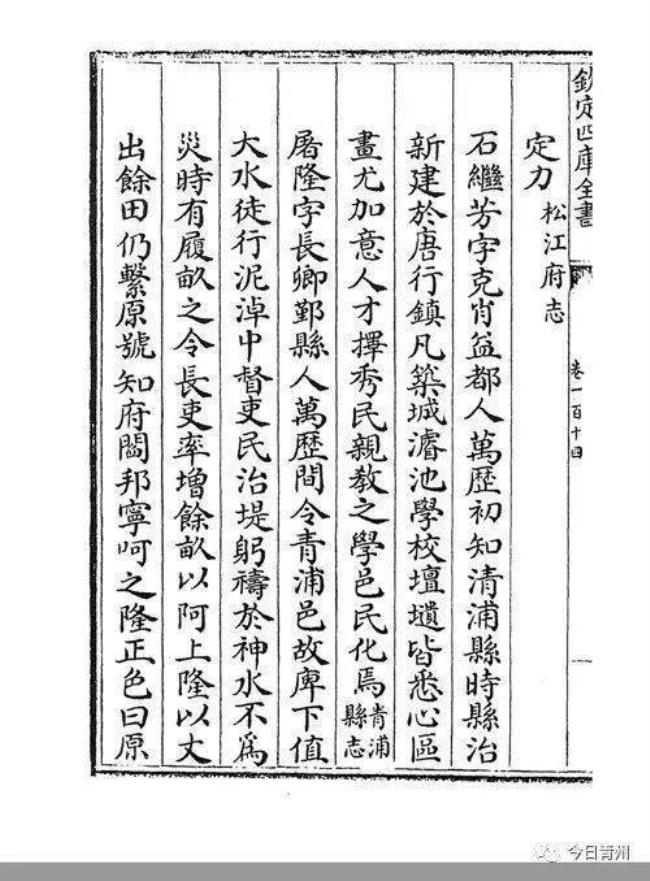 欽定四庫全書
卷一百十四
定力松江府志
石繼芳字克肖益都人萬歷初知清浦縣時縣治
新建於唐行鎮凡築城濬池學校壇壝皆悉心區
畫尤加意人才擇秀民親教之學邑民化焉青浦縣志
屠隆字長卿鄞縣人萬歷間令青浦邑故庳下值
大水徒行泥淖中督吏民治堤躬禱於神水不為
災時有履畝之令長吏率增餘畝以阿上隆以丈
出餘田仍繫原號知府閻邦寧呵之隆正色曰原
今日青州